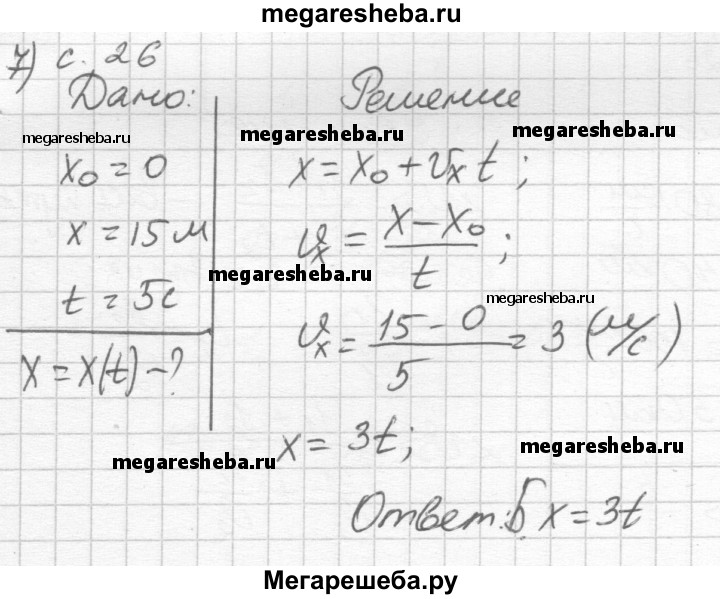 megaresheba.ru
7) с. 26
Дано:
megaresheba.ru
x₀ = 0
x = 15 м
t = 5с
x = x(t) - ?
Решение
megaresheba.ru
megaresheba.ru
x = x₀ + vₓ t;
vₓ = (x - x₀)/t;
megaresheba.ru
megaresheba.ru
vₓ = (15 - 0)/5 = 3 (м/с)
x = 3t;
megaresheba.ru
megaresheba.ru
Ответ: Б. x = 3t
Мегарешеба.ру